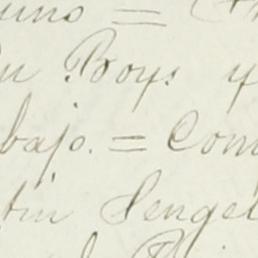 uno =
Du Boys y
bajo. = Com
tin Sengel